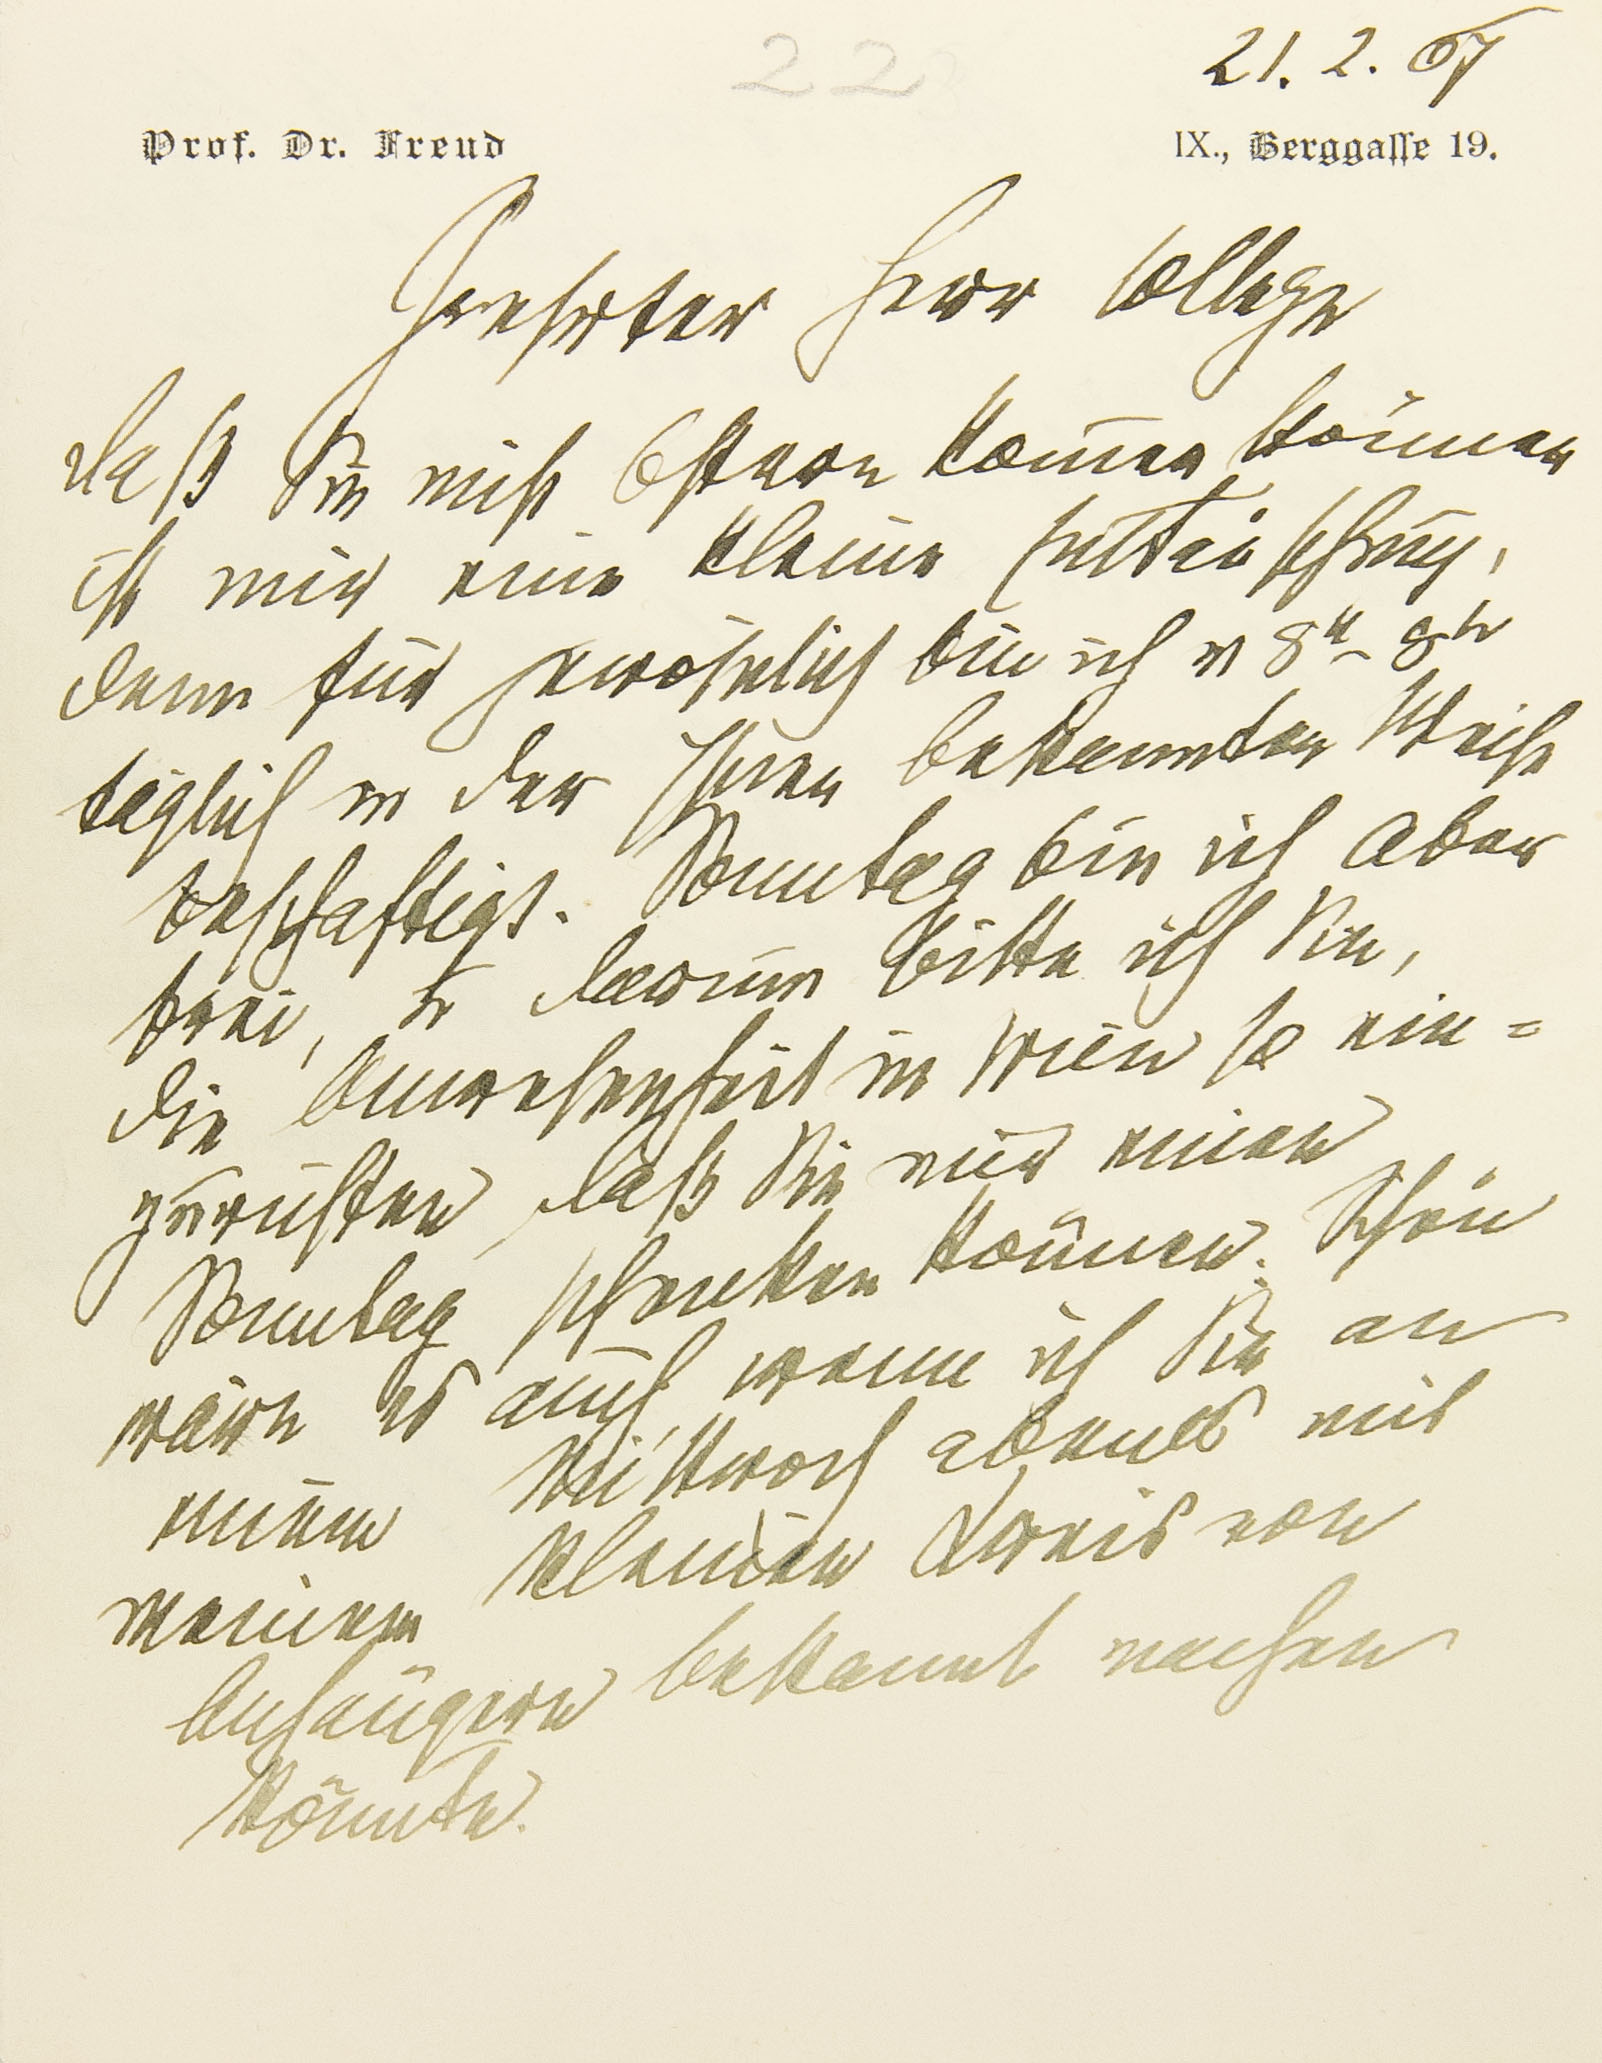 22
21. 2. 07
Prof. Dr. Freud IX., Berggasse 19.
Geehrter Herr College
Daß Sie nicht Ostern kommen können
ist mir eine kleine Enttäuschung,
denn für gewöhnlich bin ich v 8h–8h
täglich in der Ihnen bekannten Weise
beschäftigt. Sonntag bin ich aber
frei, u darum bitte ich Sie,
die Anwesenheit in Wien so ein=
zurichten, daß Sie mir einen
Sonntag schenken können. Schön
wäre es auch, wenn ich Sie an
einem Mittwoch abends mit
meinem kleinen Kreis von
Anhängern bekannt machen
könnte.